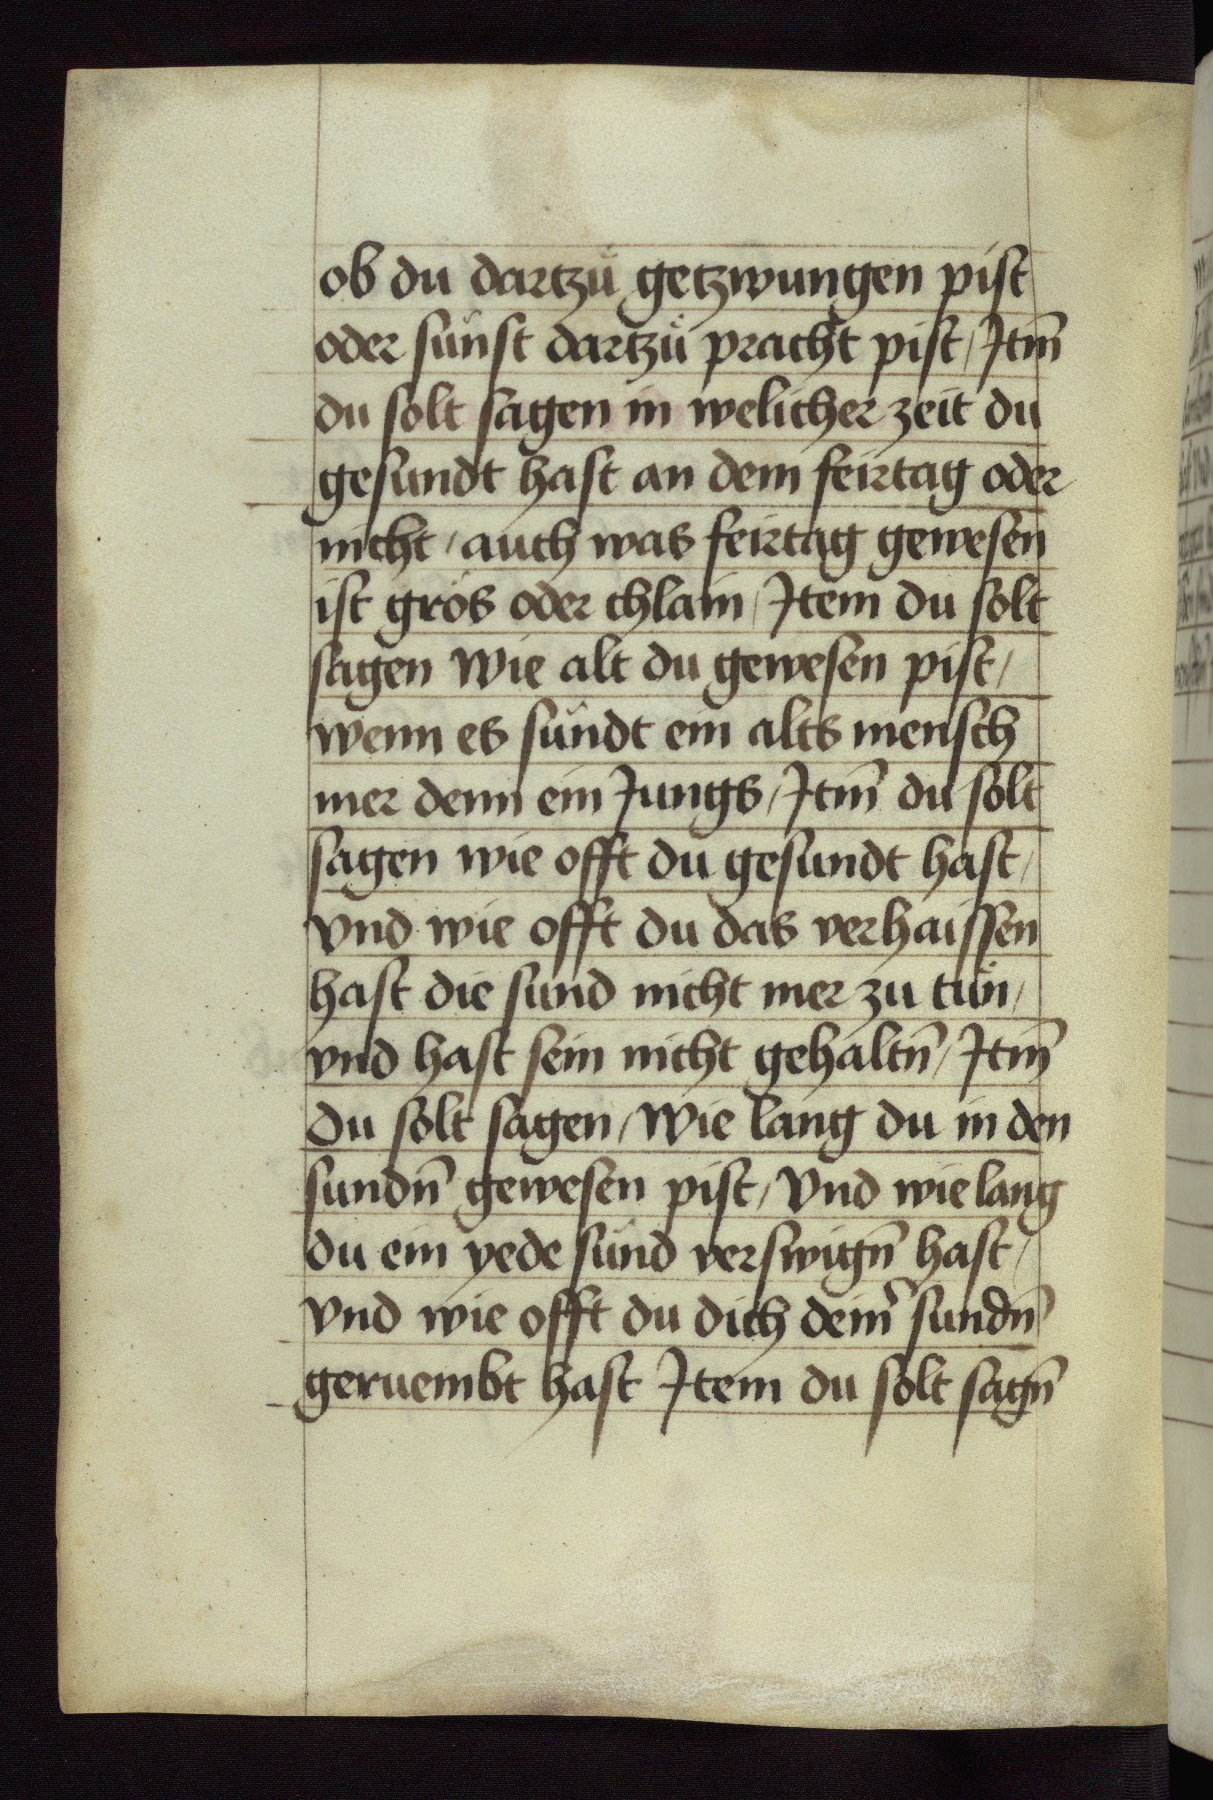 ob du dartzů getzwungen pist
oder sünst dartzů pracht pist / Itm̄
du solt sagen in welicher zeit du
gesundt hast an dem feirtag oder
nicht / auch was feirtag gewesen
ist grös oder chlain / Item du solt
sagen wie alt du gewesen pist /
wenn es sündt ein alts mensch
mer denn ein Jungs / Itm̄ du solt
sagen wie offt du gesundt hast /
vnd wie offt du das verhaissen
hast die sund nicht mer zu tün /
vnd hast sein nicht gehaltn̄ / Itm̄
du solt sagen / wie lang du in den
sundn̄ gewesen pist / vnd wie lang
du ein yede sünd verswign̄ hast /
vnd wie offt du dich deim̄ sundn̄
geruembt hast Item du solt sagn̄